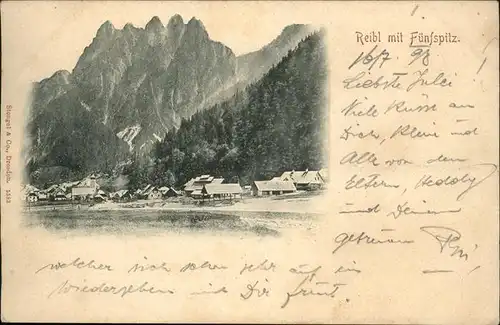 Reibl mit Fünfspitz.
16/7 98
Liebste Julci
Viele Küsse an
Dich, Kleine und
Alle von dem
Eltern, Heddy
und Deinem
getreuen
welcher sich schon sehr auf ein
Wiedersehen mit Dir freut.
Stengel & Co., Dresden. 1435